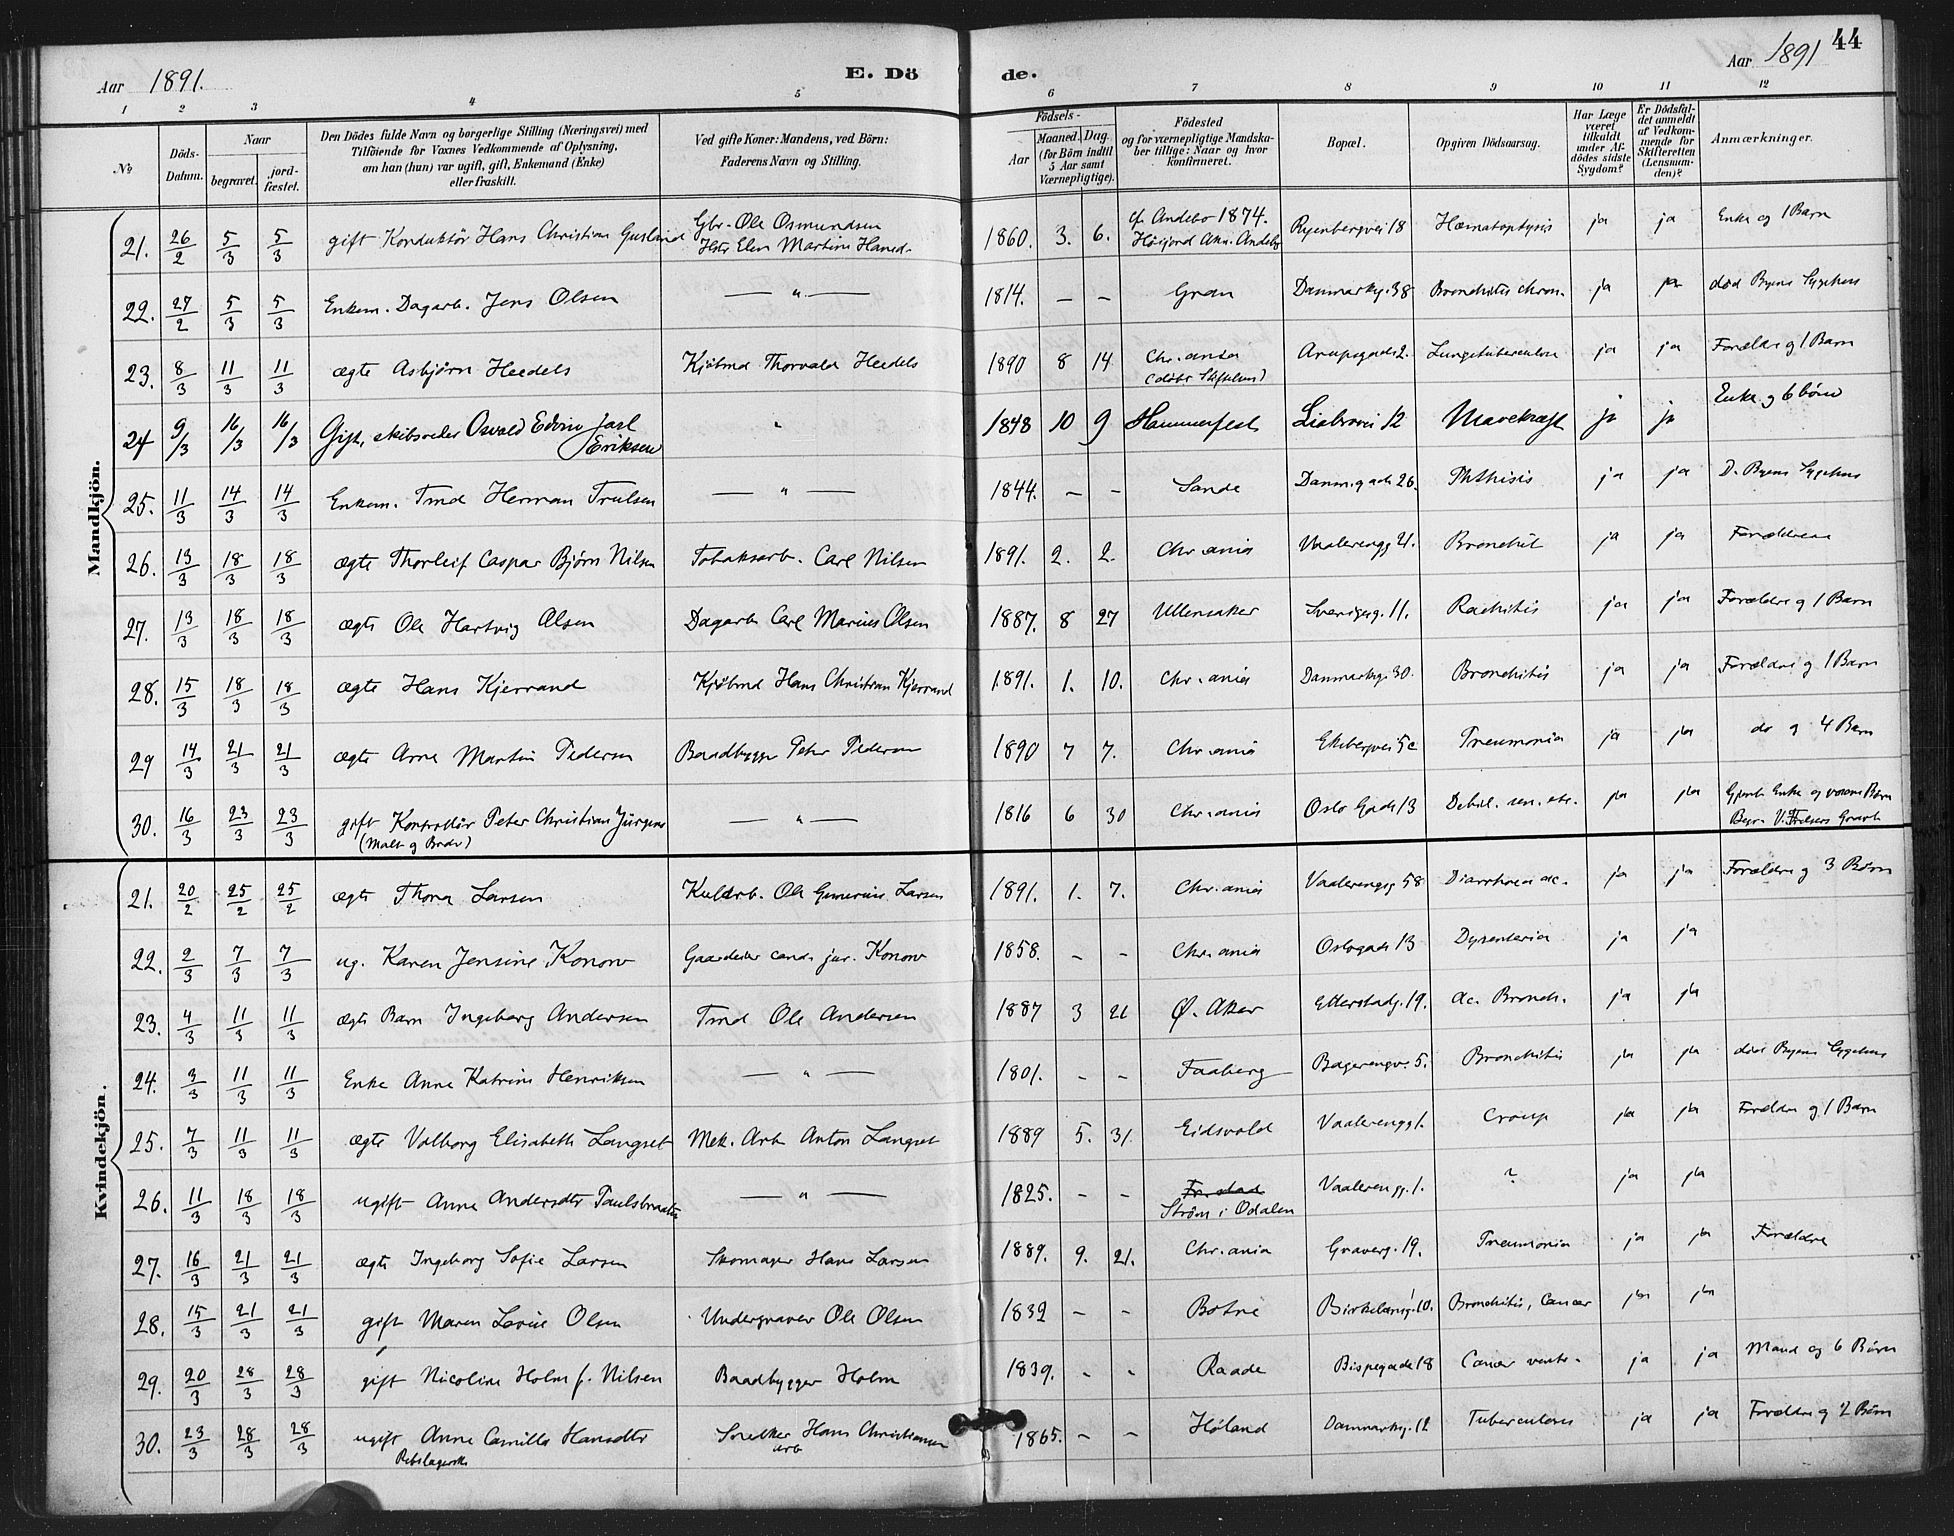 44
Aar 1891.
E. Dö
de.
Aar 1891
1 2 3 4 5 6 7 8 9 10 11 12
No
Döds-Datum.
Naar
begravet.
jord-fæstet.
Den Dödes fulde Navn og borgerlige Stilling (Næringsvei) med
Tilföiende for Voxnes Vedkommende af Oplysning,
om han (hun) var ugift, gift, Enkemand (Enke)
eller fraskilt.
Ved gifte Koner: Mandens, ved Börn:
Faderens Navn og Stilling.
Födsels-
Aar
Maaned. Dag
(for Börn indtil
5 Aar samt
Værnepligtige).
Födested
og for værnepligtige Mandska-
ber tillige: Naar og hvor
konfirmeret.
Bopæl.
Opgiven Dödsaarsag.
Har Læge
været
tilkaldt
under Af-
dödes sidste
Sygdom?
Er Dödsfal-
det anmeldt
af Vedkom-
mende for
Skifteretten
(Lensman-
den)?
Anmærkninger.
Mandkjön.
21. 26/2 5/3 5/3 gift Konduktör Hans Christian Gusland Gbr. Ole Osmundsen 1860. 3. 6. cf. Andebo 1874. Ryenbergvei 18 Hæmatoptysis ja ja Enke og 1 Barn
Hstr Elen Martine Hansd. Høijord Akr. Andebo
22. 27/2 5/3 5/3 Enkem. Dagarb. Jens Olsen — " — 1814. – – Gran Danmarksg. 38 Bronchitis chron. ja ja død Byens Sygehus
23. 8/3 11/3 11/3 ægte Asbjørn Heedels Kjøbmd Thorvald Heedels 1890 8 14 Chr.ania Arupsgade 2. Lungetuberculose ja ja Forældre og 1 Barn
24 9/3 16/3 16/3 Gift, skibsreder Osvald Edvin Jarl Eriksen " 1848 10 9 Hammerfest Liabrovei 12 Mavekræft ja ja Enke og 6 børn
25. 11/3 14/3 14/3 Enkem. Tmd Herman Trulsen — " — 1844. – – Sande Danm.gade 26. Phthisis ja ja D. Byens Sygehus
26. 13/3 18/3 18/3 ægte Thorleif Caspar Bjørn Nilsen Tobaksarb. Carl Nilsen 1891. 2. 2. Chr.ania Vaalerengg 21. Bronchit ja ja Forældrene
27. 13/3 18/3 18/3 ægte Ole Hartvig Olsen Dagarb Carl Marius Olsen 1887. 8 27 Ullensaker Sverigesg. 11. Rachitis ja ja Forældre og 1 Barn
28. 15/3 18/3 18/3 ægte Hans Kjerrand Kjøbmd Hans Christian Kjerrand 1891. 1. 10. Chr.ania Danmarksg. 30. Bronchitis ja ja Forældre og 1 Barn
29 14/3 21/3 21/3 ægte Arne Martin Pedersen Baadbygger Peter Pedersen 1890 7 7. Chr.ania Ekebergvei 5c Pneumonia ja ja do og 4 Barn
30. 16/3 23/3 23/3 gift Kontrollör Peter Christian Jürgens — " — 1816 6 30 Chr.ania Oslo Gade 13 Debil. sen. etc. ja ja Gjenl. Enke og voxne Børn
(Malt og Brdv)
Kvindekjön.
21. 20/2 25/2 25/2 ægte Thora Larsen Kularb. Ole Gunerius Larsen 1891. 1. 7. Chr.ania Vaalerengsg 58 Diarrhoea ac. ja ja Forældre og 3 Børn
22. 2/3 7/3 7/3 ug. Karen Jensine Konow Gaardeier cand. jur. Konow 1858. – – Chr.ania Oslogade 13 Dysenteria ja ja
23. 4/3 11/3 11/3 ægte Barn Ingeborg Andersen Tmd Ole Andersen 1887 3 21 Ø. Aker Etterstadg. 19. ac. Bronch. ja ja
24. 3/3 11/3 11/3 Enke Anne Katrine Henriksen — " — 1801. – – Faaberg Bagerengv. 5. Bronchitis ja ja død Byens Sygehus
25. 7/3 11/3 11/3 ægte Valborg Elisabeth Langset Mek. Arb Anton Langset 1889 5. 31. Eidsvold Vaalerengg 1. Croup ja ja Forældre og 1 Barn
26. 11/3 18/3 18/3 ugift Anne Andersdtr Paulsbraaten — " — 1825. – – Strøm i Odalen Vaalerengg. 1. ? ja ja
27. 16/3 21/3 21/3 ægte Ingeborg Sofie Larsen Skomager Hans Larsen 1889. 9. 21. Chr.ania Graverg. 19. Pneumonia ja ja Forældre
28. 15/3 21/3 21/3 gift Maren Lovise Olsen Undergraver Ole Olsen 1832 – – Botne Birkelunsg. 10. Bronchitis, Cancer ja ja
29. 20/3 28/3 28/3 gift Nicoline Holm f. Nilsen Baadbygger Holm 1839. – – Raade Bispegade 18 Cancer ventr. ja ja Mand og 6 Børn
30. 23/3 28/3 28/3 ugift Anne Camilla Hansdtr Snedker Hans Christiansen 1865. – – Høland Danmarksg. 12 Tuberculosis ja ja Forældre og 2 Børn
arb